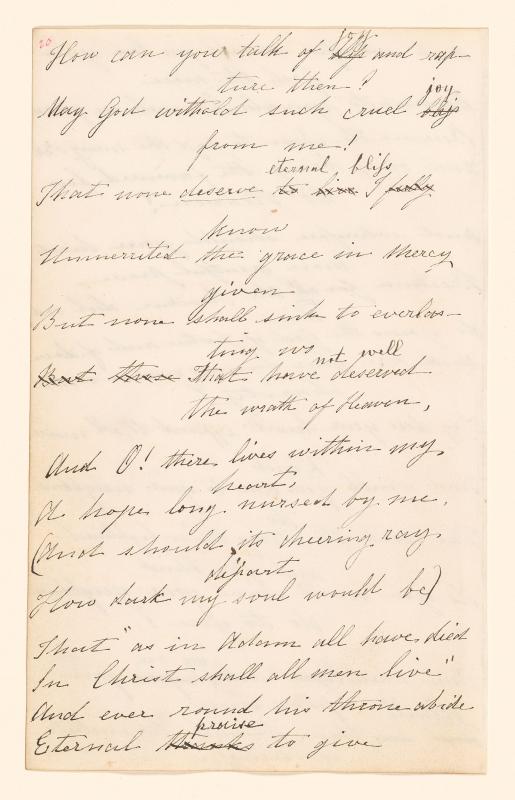 20
joy
How can you talk of bliss and rap-
ture then?
joy
May God withold such cruel bliss
from me!
eternal bliss
That none deserve to I fully
know
Unmerited the grace in mercy
given
But none shall sink to everlas-
ting wo
not well
those That have deserved
the wrath of Heaven,
And O! there lives within my
heart,
A hope long nursed by me,
(And should its cheering ray
depart
How dark my soul would be)
That "as in Adam all have died
In Christ shall all men live"
And ever round his throne abide
praise
Eternal thanks to give